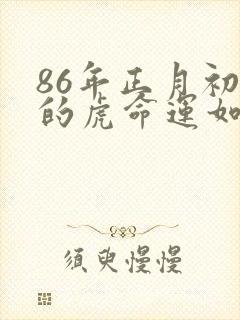 86年正月初
的虎命运如
须臾慢慢